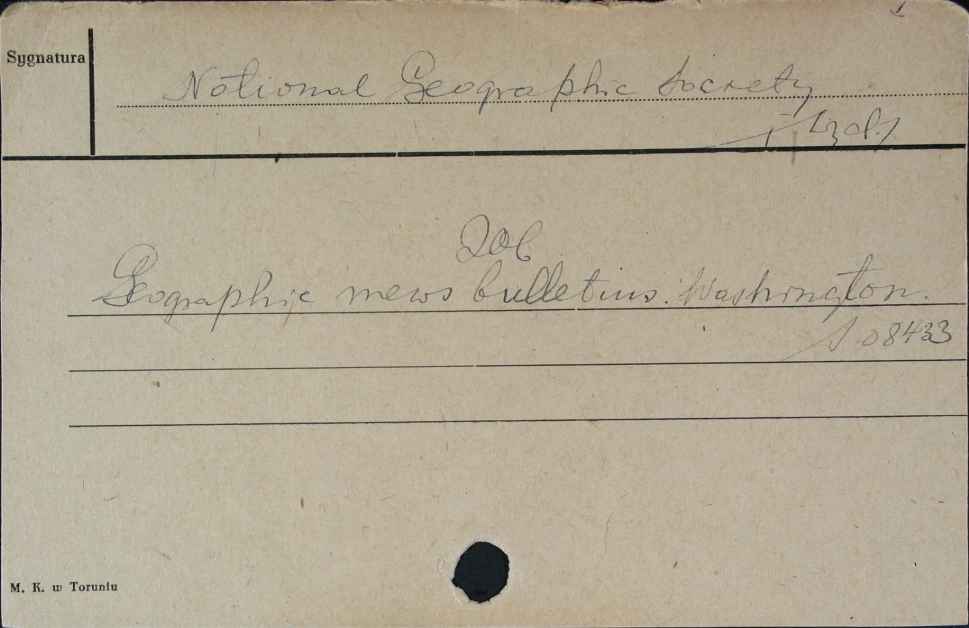 1
Sygnatura
National Geographic Society
Zob.
Geographic news bulletins. Washington.
S 08433
M. K. w Toruniu